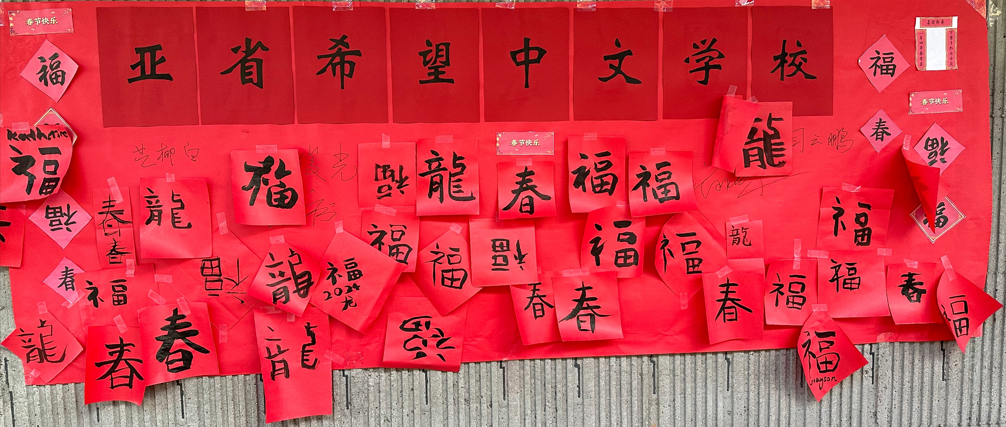 亚省希望中文学校
春节快乐
春节快乐
春节快乐
福
福
春
福
福
福
春
福
龍
福
福
龍
春
福
福
龍
福
龍
春
春
福
福
福
福
福
福
龍
福
福
龍
福
2024
龙
春
春
春
福
福
春
福
龍
春
春
龍
福
福
jayson